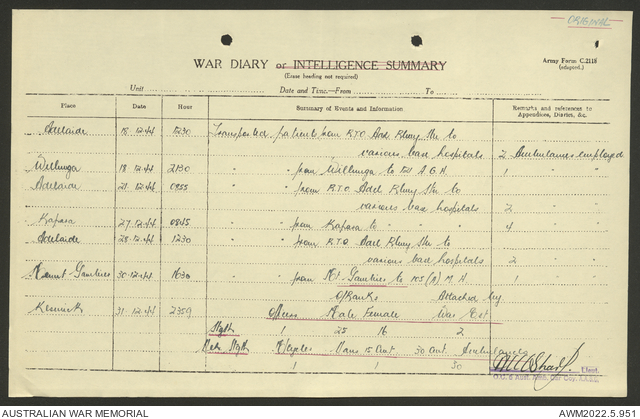 ORIGINAL
WAR DIARY or INTELLIGENCE SUMMARY
(Erase heading not required)
Army Form C.2118
(adapted.)
Unit
Date and Time.—From To
Place Date Hour Summary of Events and Information Remarks and references to Appendices, Diaries, &c.
Adelaide 18.12.44 1230 Transported patients from R.T.O. Adel Rlwy Stn to
various base hospitals 2 Ambulances employed
Willunga 18.12.44 2130 " " from Willunga to 121 A.G.H. 1 "
Adelaide 21.12.44 0855 " " from R.T.O. Adel Rlwy Stn to
various base hospitals 2 "
Kapara 27.12.44 0845 " " from Kapara to " " 4 "
Adelaide 28.12.44 1230 " " from R.T.O. Adel Rlwy Stn to
various base hospitals 2 "
Mount Gambier 30.12.44 1630 " " from Mt. Gambier to 105 (A) M.H. 1 "
O/Ranks Attached
Keswick 31.12.44 2359 Officers Male Female
Stgth 1 25 16 2
Veh. Stgth M/cycles Vans 15 cwt. 30 cwt. Ambulances
1 1 30
Lieut.
AUSTRALIAN WAR MEMORIAL
AWM2022.5.951